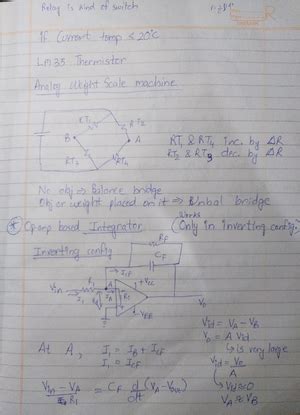 Relay is kind of switch
If Current temp ≤ 20°C
LM35 Thermistor
Analog Weight Scale machine.
RT1
RT2
B
A
RT3
RT4
RT1 & RT4 inc. by ΔR
RT2 & RT3 dec. by ΔR
No obj ⇒ Balance bridge
Obj or weight placed on it ⇒ Unbal bridge
* Opamp based Integrator (Only works in inverting config.
Inverting config
RF
CF
ICF
+VCC
Vin
R1
I1
A
IB
B
-VEE
Vo
Vid = VA - VB
Vo = A Vid
↳ is very large
At A, I1 = IB + ICF
I1 = ICF
Vid = Vo/A
Vin - VA / R1 = CF d/dt (VA - Vout)
↳ Vid ≈ 0
VA ≈ VB